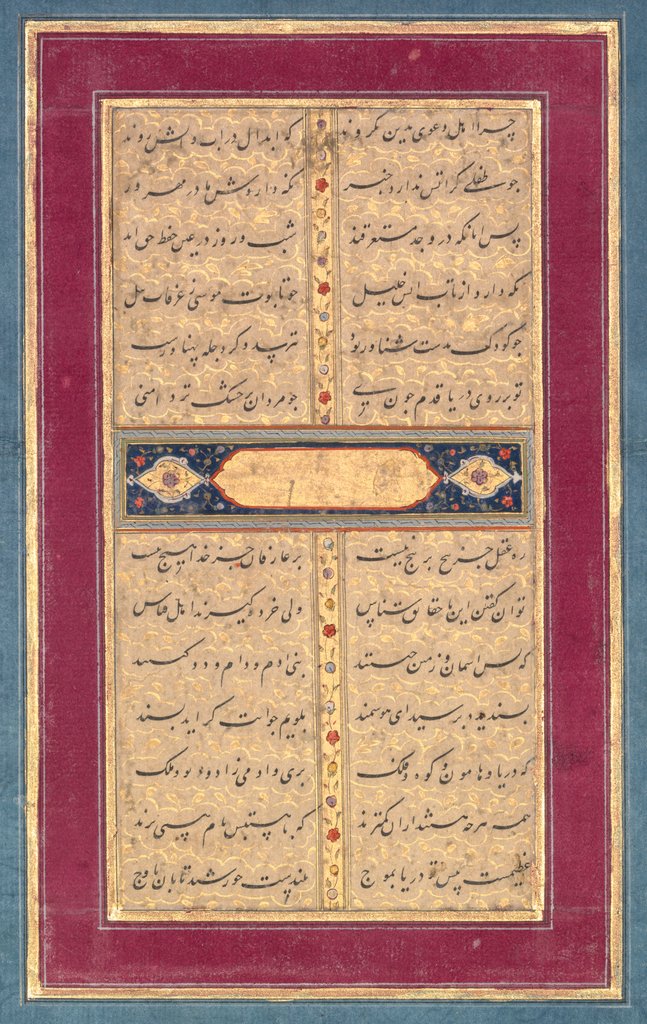 چرا اهل دعوی بدین نگروند که ابدال در آب و آتش روند
چو طفلی کز آتش ندارد خبر نگه داردش مادر مهرور
پس آنانکه در وجد مستغرقند شب و روز در عین حفظ حق‌اند
نگه دارد از تاب آتش خلیل چو تابوت موسی ز غرقاب نیل
چو کودک بدست شناور نترسد و گر دجله پهناورست
تو بر روی دریا قدم چون زنی چو مردان بر خشک تر دامنی
ره عقل جز پیچ بر پیچ نیست بر عارفان جز خدا هیچ نیست
توان گفتن این با حقایق شناس ولی خرده گیرند اهل قیاس
که پس آسمان و زمین چیستند بنی ادم و دام و دد کیستند
پسندیده پرسیدی ای هوشمند بگویم جوابت گر آید پسند
که دریا و هامون و کوه و فلک پری و ادمی زاد و دیو و ملک
همه هرچه هستند از آن کمترند که با هستیش نام هستی برند
عظیمست پیش تو دریا بموج بلندست خورشید تابان باوج